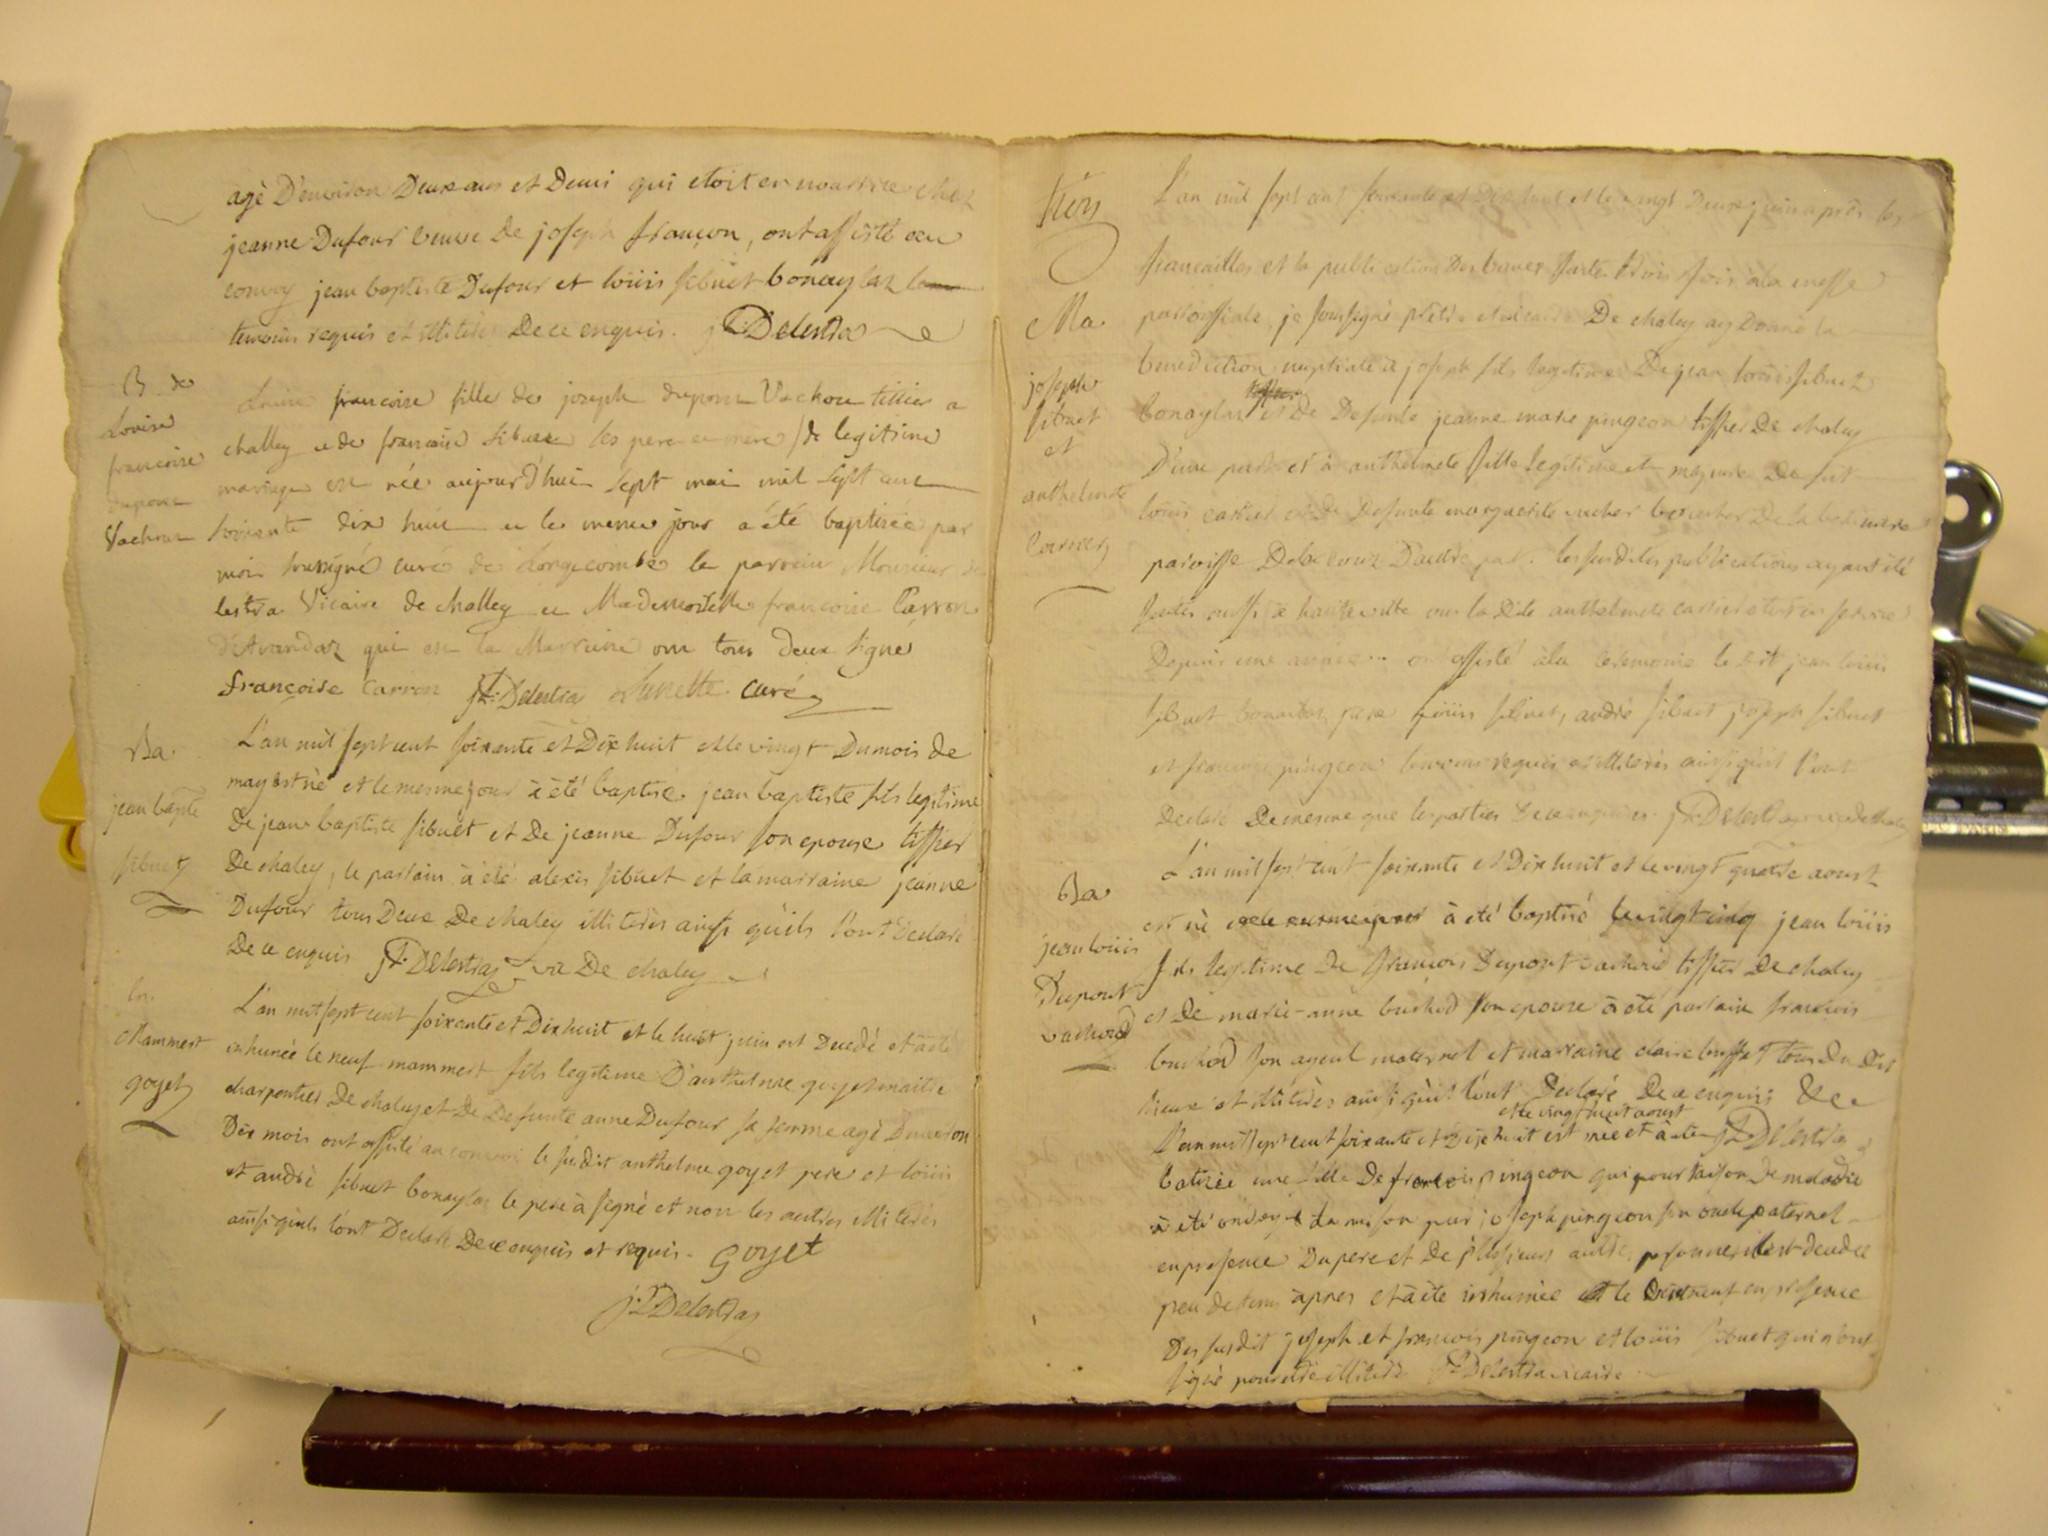 agè D'environ Deux ans et Demi qui etoit en nourrice chez
jeanne Dufour veuve De joseph françon, ont assisté au
convoy jean baptiste Dufour et loüis sibuet bonaylaz
temoins requis et illiterés De ce enquis. J. Delestra
B. de
Louise
francoise
dupont
Vachou
Louise francoise fille de joseph dupont Vachou tissier a
challey et de francoise sibuet ses pere et mere / de legitime
mariage est née aujourd'hui sept mai mil sept cent
soixante dix huit et le meme jour a été baptisée par
moi soussigné curé de Longecombe le parrein Monsieur de
lestra Vicaire de challey et Mademoiselle francoise Carron
D'Avandaz qui est la Marraine ont tous deux signé
françoise Carron J. Delestra curé
Ba.
jean bapte
sibuet
L'an mil sept cent soixante et Dix huit et le vingt Du mois de
may est nè et le mesme jour à été baptisé jean baptiste fils legitime
De jean baptiste sibuet et De jeanne Dufour son epouse tissier
De chaley, le parrain à été alexis sibuet et la marraine jeanne
Dufour tous Deux De chaley illiterés ainsi qu'ils l'ont declaré
De ce enquis J. Delestraz vic De chaley
Mammert
goyet
L'an mil sept cent soixante et Dix huit et le huit juin est Decedé et a été
inhumée le neuf mammert fils legitime D'anthelme goyet maitre
charpentier De chaley et De Defunte anne Dufour sa femme agè D'environ
Dix mois ont assisté au convoi le susdit anthelme goyet pere et loüis
et andrè sibuet bonaylaz le pere à signè et non les autres illiterés
ainsi qu'ils l'ont Declaré De ce enquis et requis. Goyet
J. Delestraz
Ma
joseph
sibuet
et
anthelmete
Carrier
L'an mil sept cent soixante et Dix huit et le vingt Deux juin après les
fiancailles et la publication Des bancs faite trois fois à la messe
paroissiale, je soussigné prêtre et vicaire De chaley ay Donné la
benediction nuptiale à joseph fils legitime De jean loüis sibuet
bonaylaz et De Defunte jeanne marie pingeon tissier De chaley
D'une part et à anthelmete fille legitime et majeure De fut
loüis carrier et De Defunte marguerite
paroisse De D'autre part. les susdites publications ayant été
faites aussi à hauteville ou la Dite anthelmete carrier etoit en service
Depuis une année ont assisté à la ceremonie le Dit jean loüis
sibuet bonaylaz pere loüis sibuet, andrè sibuet joseph sibuet
et francois pingeon temoins requis et illiterés ainsi qu'ils l'ont
declaré De mesme que les parties De ce enquises. J. Delestra De Chaley
Ba
jean loüis
Dupont
vachoud
L'an mil sept cent soixante et Dix huit et le vingt quatre aoust
est nè à été baptisé le vingt cinq jean loüis
fils legitime De francois Dupont vachoud tissier De chaley
et De marie-anne buchod son epouse à été parrain francois
buchod son ayeul maternel et marraine claire tous Du Dit
lieux et illiterés ainsi qu'ils l'ont Declaré De ce enquis
et le vingt huit aoust
L'an mil sept cent soixante et Dix huit est née et à été J. Delestra
batisée une fille De francois pingeon qui pour raison De maladie
à été ondoyé par joseph pingeon son oncle paternel
en presence Du pere et De plusieurs autres personnes est decedée
peu de tems apres et à été inhumée le en presence
Des susdit joseph et francois pingeon et loüis sibuet qui n'ont
signè pour être illiterés J. Delestra vicaire